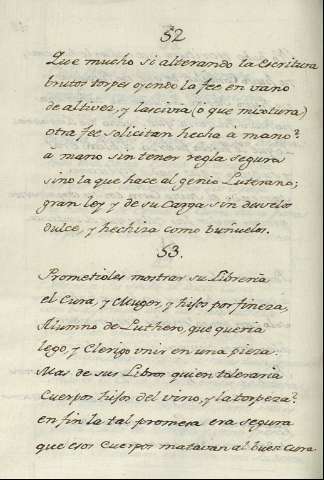 52
Que mucho si alterando la escritura
brutos torpes oyendo la fee en vano
de altivez, y lascivia (ò que mixtura)
otra fee solicitan hecha à mano?
a mano sin tener regla segura
sino la que hace al genio Luterano;
gran ley y de su Carga sin desvelos
dulce, y hechiza como buñuelos.
53.
Prometioles mostrar su Libreria
el Cura, y Muger, y hijos por fineza,
Alumno de Luthero, que queria
lego, y Clerigo unir en una pieza.
Mas de sus Libros quien toleraria
Cuerpos hijos del vino, y la torpeza?
en fin la tal promesa era segura
que esos Cuerpos matavan al buen Cura